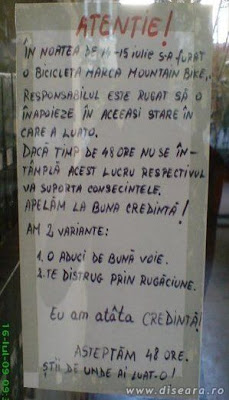 ATENȚIE!
ÎN NOATEA DE 14-15 iulie S-A FURAT
O BICICLETĂ MARCA MOUNTAIN BIKE,
RESPONSABILUL ESTE RUGAT SĂ O
ÎNAPOIEZE ÎN ACEEAȘI STARE ÎN
CARE A LUATO.
DACĂ TIMP DE 48 ORE NU SE ÎN-
TÂMPLĂ ACEST LUCRU RESPECTIVUL
VA SUPORTA CONSECINTELE.
APELĂM LA BUNA CREDINTĂ!
AM 2 VARIANTE:
1. O ADUCI DE BUNĂ VOIE.
2. TE DISTRUG PRIN RUGĂCIUNE.
Eu am atâta CREDINTĂ!
AȘTEPTĂM 48 ORE.
ȘTII DE UNDE AI LUAT-O!
www.diseara.ro